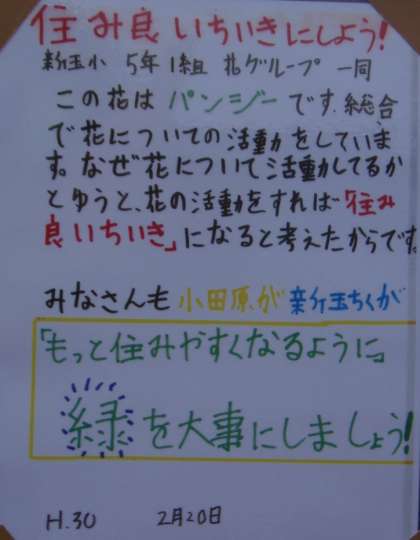 住み良いちいきにしよう!
新玉小 5年1組 花グループ 一同
この花は パンジー です。総合
で花についての活動をしていま
す。なぜ花について活動してるか
とゆうと、花の活動をすれば「住み
良いちいき」になると考えたからです。
みなさんも 小田原が 新玉ちくが
「もっと住みやすくなるように」
緑を大事にしましょう!
H.30 2月20日